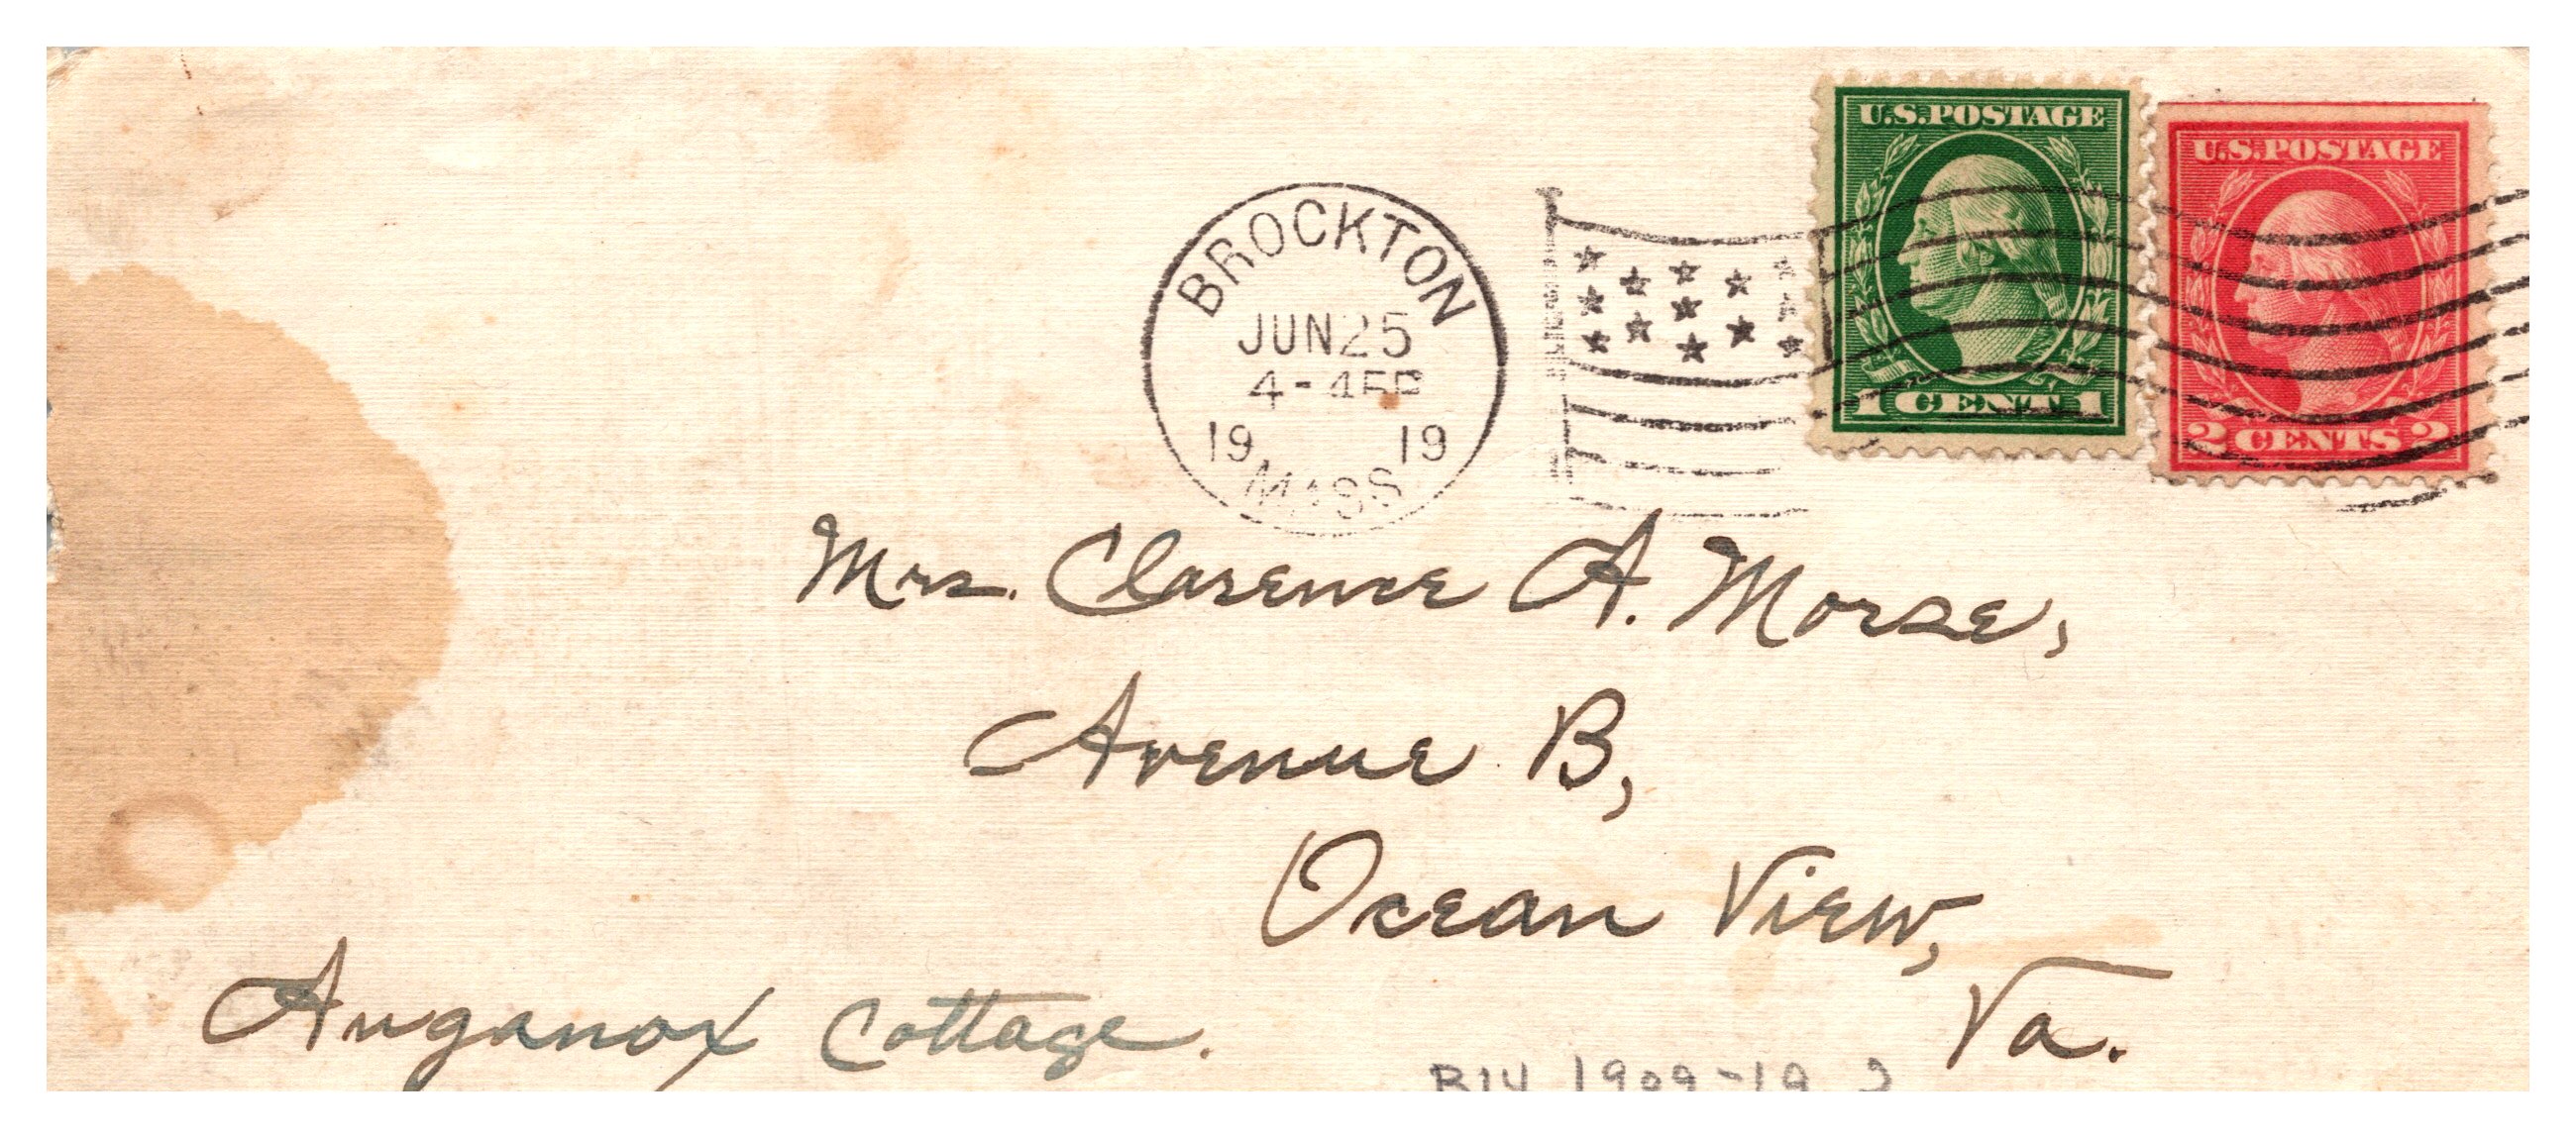 U.S. POSTAGE
1 CENT 1
U.S. POSTAGE
2 CENTS 2
BROCKTON
JUN 25
4-
19 19
MASS
Mrs. Clarence A. Morse,
Avenue B,
Ocean View,
Va.
Cottage.
1909-19